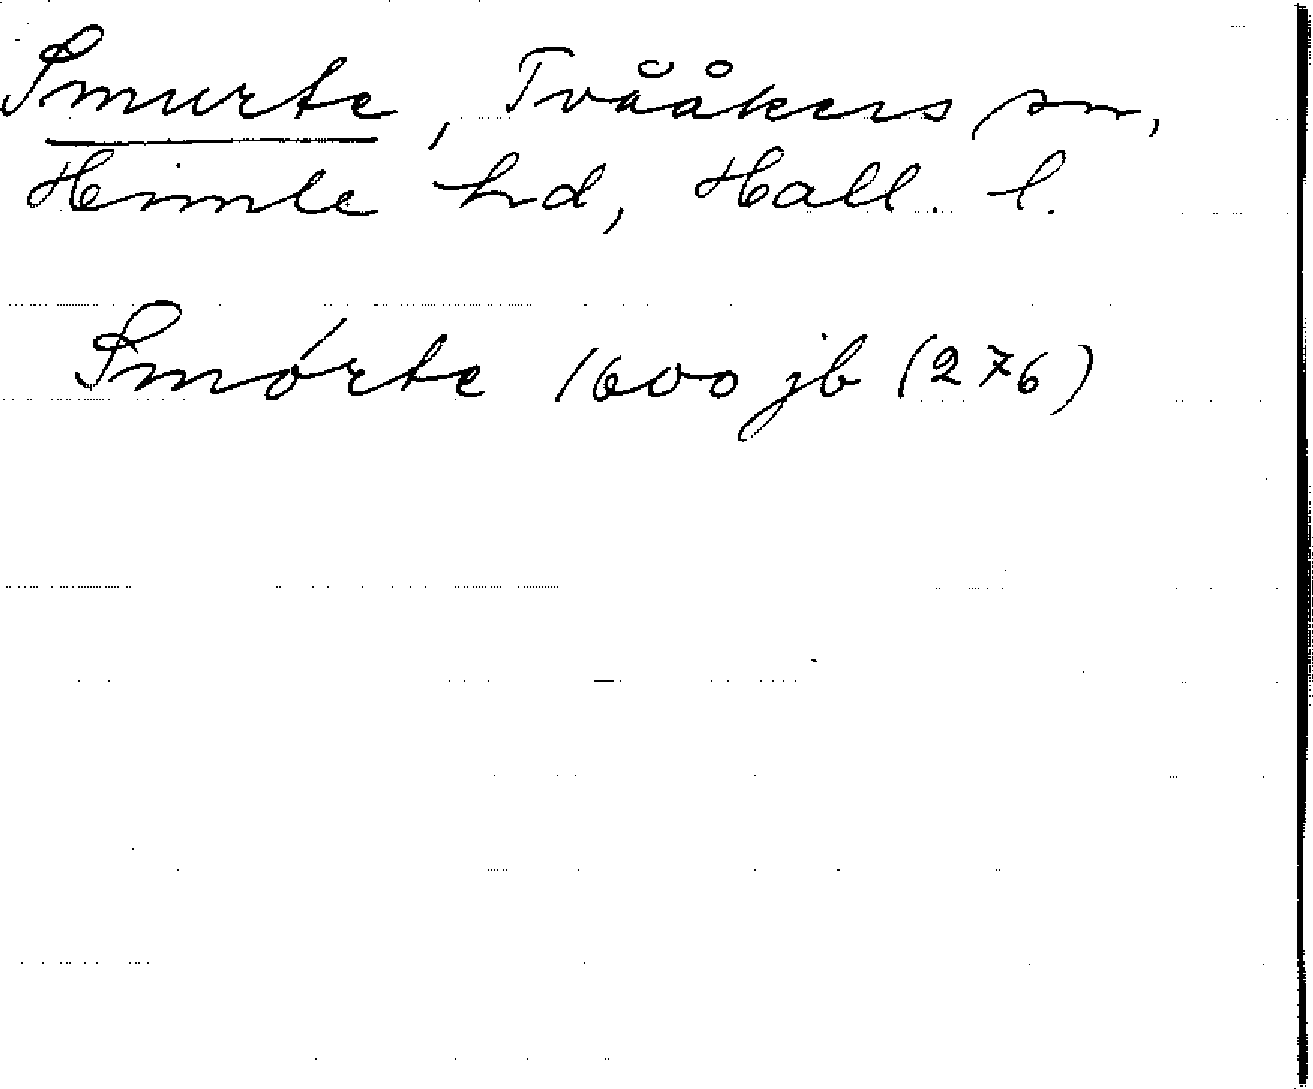 Smurte, Tvååkers sn,
Himle hd, Hall. l.
Smórte 1600 jb (276)